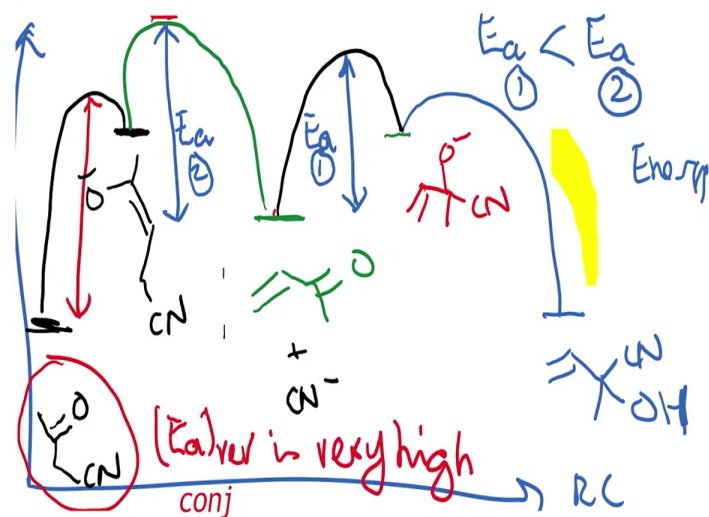 Ea < Ea
① ②
Ea
②
Ea
①
Energy
O⁻
CN
O⁻
CN
O
+
CN⁻
CN
OH
O
CN
(Ea)rev is very high
conj
RC